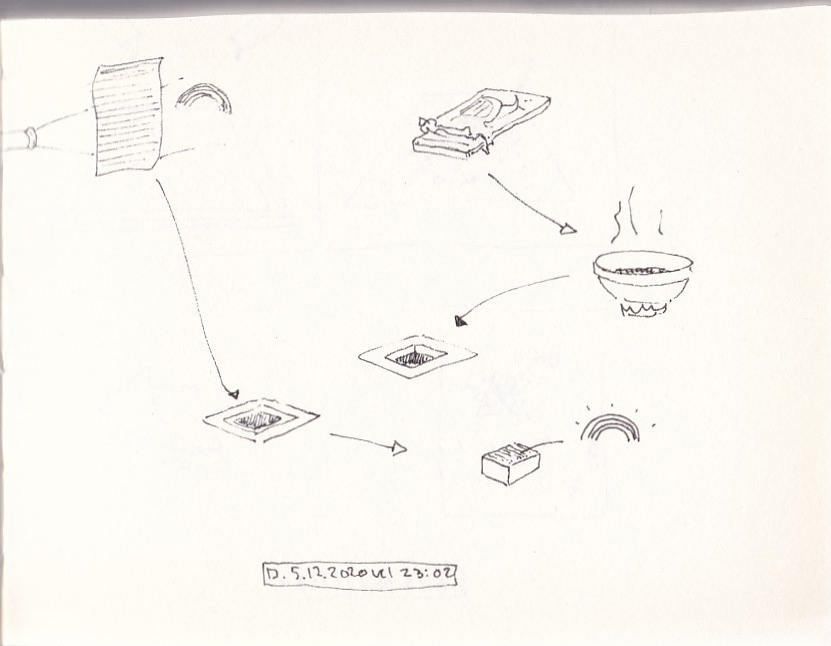 D. 5.12.2020 kl 23:02